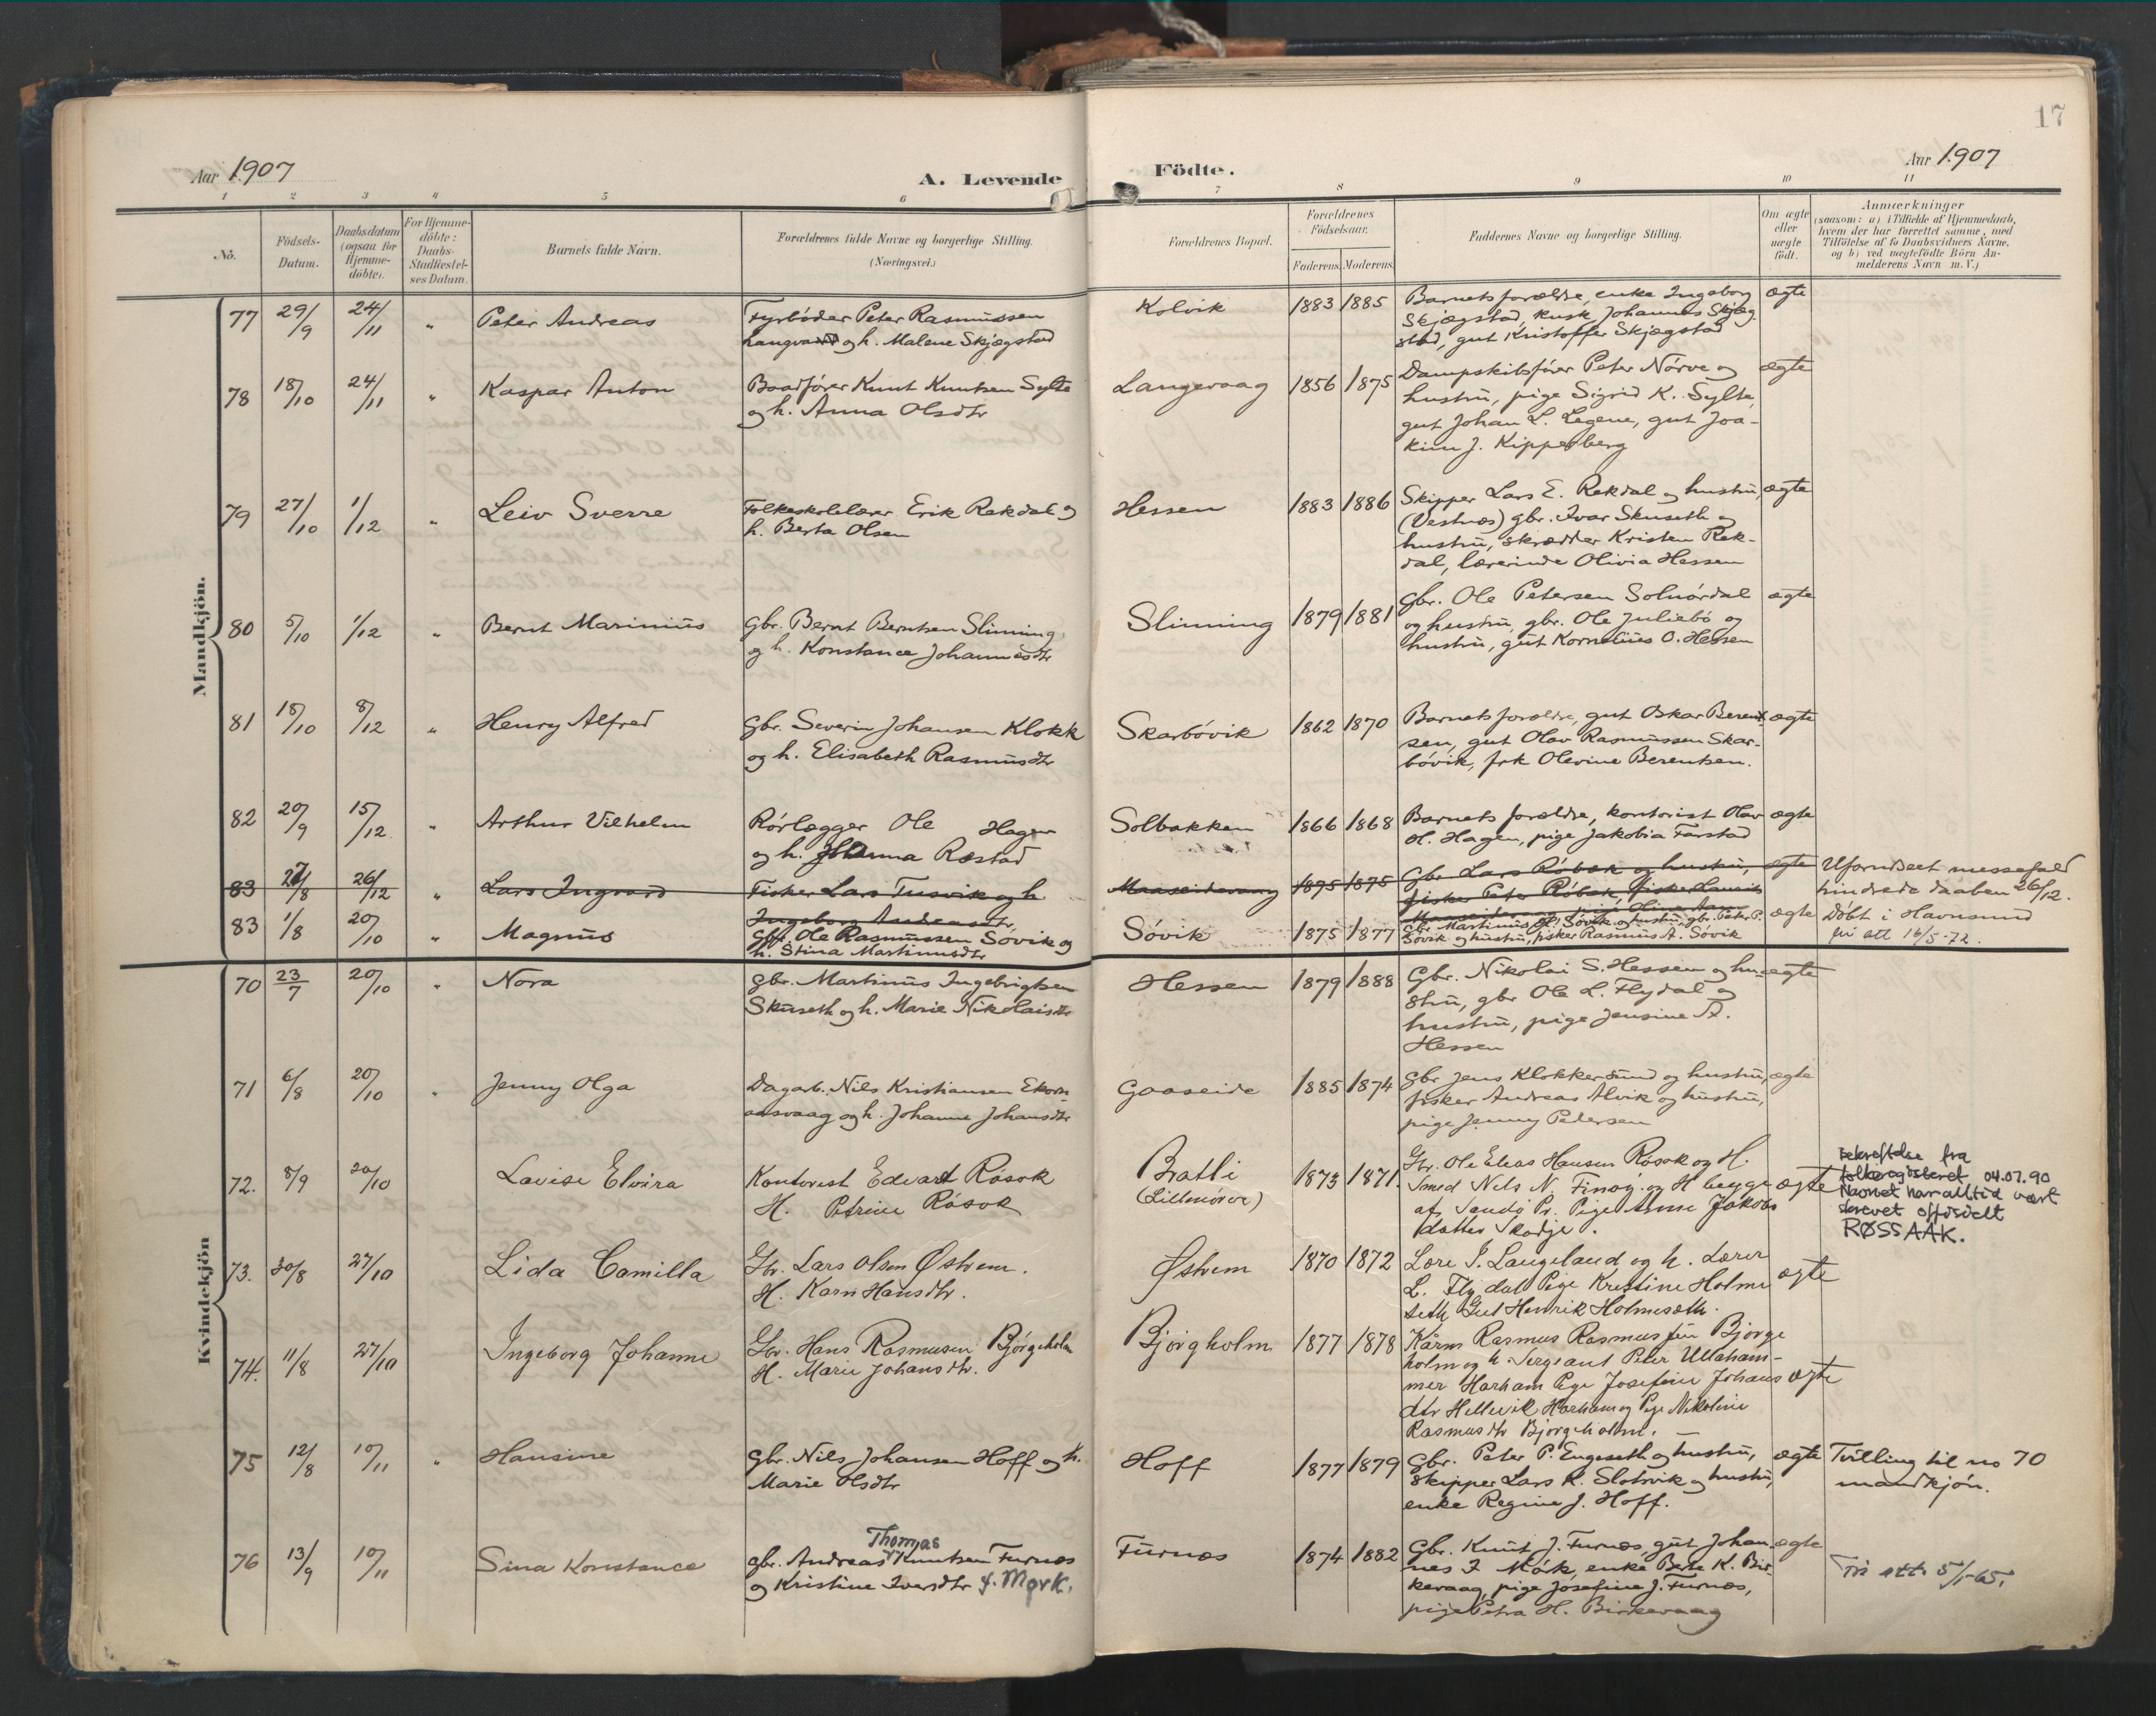 17
Aar 1907
A. Levende Födte.
Aar 1907
1 2 3 4 5 6 7 8 9 10 11
No.
Födsels-
Datum.
Daabsdatum
(ogsaa for
Hjemme-
döbte).
For Hjemme-
döbte:
Daabs-
Stadfæstel-
ses Datum.
Barnets fulde Navn.
Forældrenes fulde Navne og borgerlige Stilling.
(Næringsvei.)
Forældrenes Bopæl.
Forældrenes
Födselsaar.
Faderens. Moderens.
Faddernes Navne og borgerlige Stilling.
Om ægte
eller
uægte
födt.
Anmærkninger
(saasom: a) i Tilfælde af Hjemmedaab,
hvem der har forrettet samme, med
Tilföielse af to Daabsvidners Navne,
og b) ved uægtefödte Börn An-
melderens Navn m. V.)
Mandkjön.
77 29/9 24/11 " Peter Andreas
Fyrbøder Peter Rasmussen
Langva og h. Malene Skjægstad
Kolvik 1883 1885
Barnets forældre, enke Ingeborg
Skjægstad, kusk Johannes Skjæg-
stad, gut Kristoffer Skjægstad
ægte
78 18/10 24/11 " Kaspar Anton
Baadfører Knut Knutsen Sylte
og h. Anna Olsdtr
Langevaag 1856 1875
Dampskibsfører Peter Nørve og
hustru, pige Sigrid K. Sylte,
gut Johan L. Legene, gut Joa-
kim J. Kipperberg
ægte
79 27/10 1/12 " Leiv Sverre
Folkeskolelærer Erik Rekdal og
h. Berta Olsen
Hessen 1883 1886
Skipper Lars E. Rekdal og hustru,
(Vestnæs) gbr. Ivar Skuseth og
hustru, skrædder Kristen Rek-
dal, lærerinde Olivia Hessen
ægte
80 5/10 1/12 " Bernt Marinius
gbr. Bernt Berntsen Slinning
og h. Konstance Johannesdtr
Slinning 1879 1881
gbr. Ole Petersen Solnørdal
og hustru, gbr. Ole Juliebø og
hustru, gut Kornelius O. Hessen
ægte
81 18/10 8/12 " Henry Alfred
gbr. Severin Johansen Klokk
og h. Elisabeth Rasmusdtr
Skarbøvik 1862 1870
Barnets forældre, gut Oskar Berent-
sen, gut Olav Rasmussen Skar-
bøvik, frk Olevine Berentsen.
ægte
82 20/9 15/12 " Arthur Vilhelm
Rørlægger Ole Hagen
og h. Johanna Ræstad
Solbakken 1866 1868
Barnets forældre, kontorist Olav
O. Hagen, pige Jakobia Farstad
ægte
83 27/8 26/12 " Lars Ingvard
Fisker Lars Tusvik og h
Ingeborg Andreasdtr,
Maaseidevaag 1895 1875
Gbr. Lars Røbæk og hustru,
fisker Peter Røbæk, fisker Laurits
Maaseidevaag, pige Oline
ægte
Uforudseet messefald
hindrede daaben 26/12.
83 1/8 20/10 " Magnus
gbr. Ole Rasmussen Søvik og
h. Stina Martinusdtr
Søvik 1875 1877
Gbr Martinus Søvik og hustru, gbr. Peter P.
Søvik og hustru, fisker Rasmus A. Søvik
ægte
Døbt i Havnsund
fri att 16/5-72.
Kvindekjön
70 23/7 20/10 " Nora
gbr. Martinus Ingebrigtsen
Skuseth og h. Marie Nikolaisdtr
Hessen 1879 1888
Gbr. Nikolai S. Hessen og hu-
stru, gbr Ole L. Flydal og
hustru, pige Jensine N.
Hessen
ægte
71 6/8 20/10 " Jenny Olga
Dagarb. Nils Kristiansen Ekorn-
aasvaag og h. Johanne Johansdtr
Gaaseide 1885 1874
gbr Jens Klokkersund og hustru,
fisker Andreas Alvik og hustru,
pige Jenny Petersen
ægte
72. 8/9 20/10 Lovise Elvira
Kontorist Edvart Røsok
H. Petrine Røsok
Bratli
(Lillemoren)
1873 1871.
Gbr. Ole Elias Hansen Røsok og H.
Smed Nils N. Finøy og H begge
af Sandø Pr. Pige Anne Jakobs
datter Skodje.
ægte
bekreftelse fra
folkeregisteret 04.07.90
Navnet har alltid vært
skrevet offisielt
RØSSAAK.
73. 30/8 27/10 Lida Camilla
Gbr. Lars Olsen Østrem.
H. Karn Hansdtr.
Østrem 1870 1872
Lære I. Langeland og h. Lærer
L. Flydal Pige Kristine Holme
seth Gut Henrik Holmeseth.
ægte
74. 11/8 27/10 Ingeborg Johanne
Gbr. Hans Rasmusen Bjørgeholm
H. Marie Johansdtr.
Bjørgholm 1877 1878
Kårm Rasmus Rasmussen Bjørge
holm og h. Sergeant Peter Ullaham-
mer Harham Pige Josefine Johans
dtr Hellevik Harham og Pige Nikoline
Rasmusdtr Bjørgeholm.
ægte
75 12/8 10/11 " Hansine
gbr. Nils Johansen Hoff og h.
Marie Olsdtr
Hoff 1877 1879
Gbr. Peter P. Engeseth og hustru,
skipper Lars K. Slotsvik og hustru,
enke Regine J. Hoff.
ægte
Tvilling til no 70
mandkjøn.
76 13/9 10/11 Sina Konstance
Thomas
gbr. Andreas Knutsen Furnæs
og Kristine Iversdtr f. Mørk.
Furnæs 1874 1882
Gbr. Knut J. Furnæs, gut Johan
nes I Møk, enke Berte K. Bir-
kevaag, pige Josefine J. Furnæs,
pige Petra H. Birkevaag
ægte
Fri att. 5/1-65.